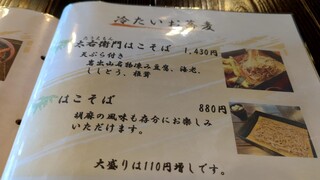 冷たいお蕎麦
太右衛門はこそば 1,430円
天ぷら付き
岩出山名物凍み豆腐、海老、
ししとう、椎茸
はこそば 880円
胡麻の風味も存分にお楽しみ
いただけます。
大盛りは110円増しです。